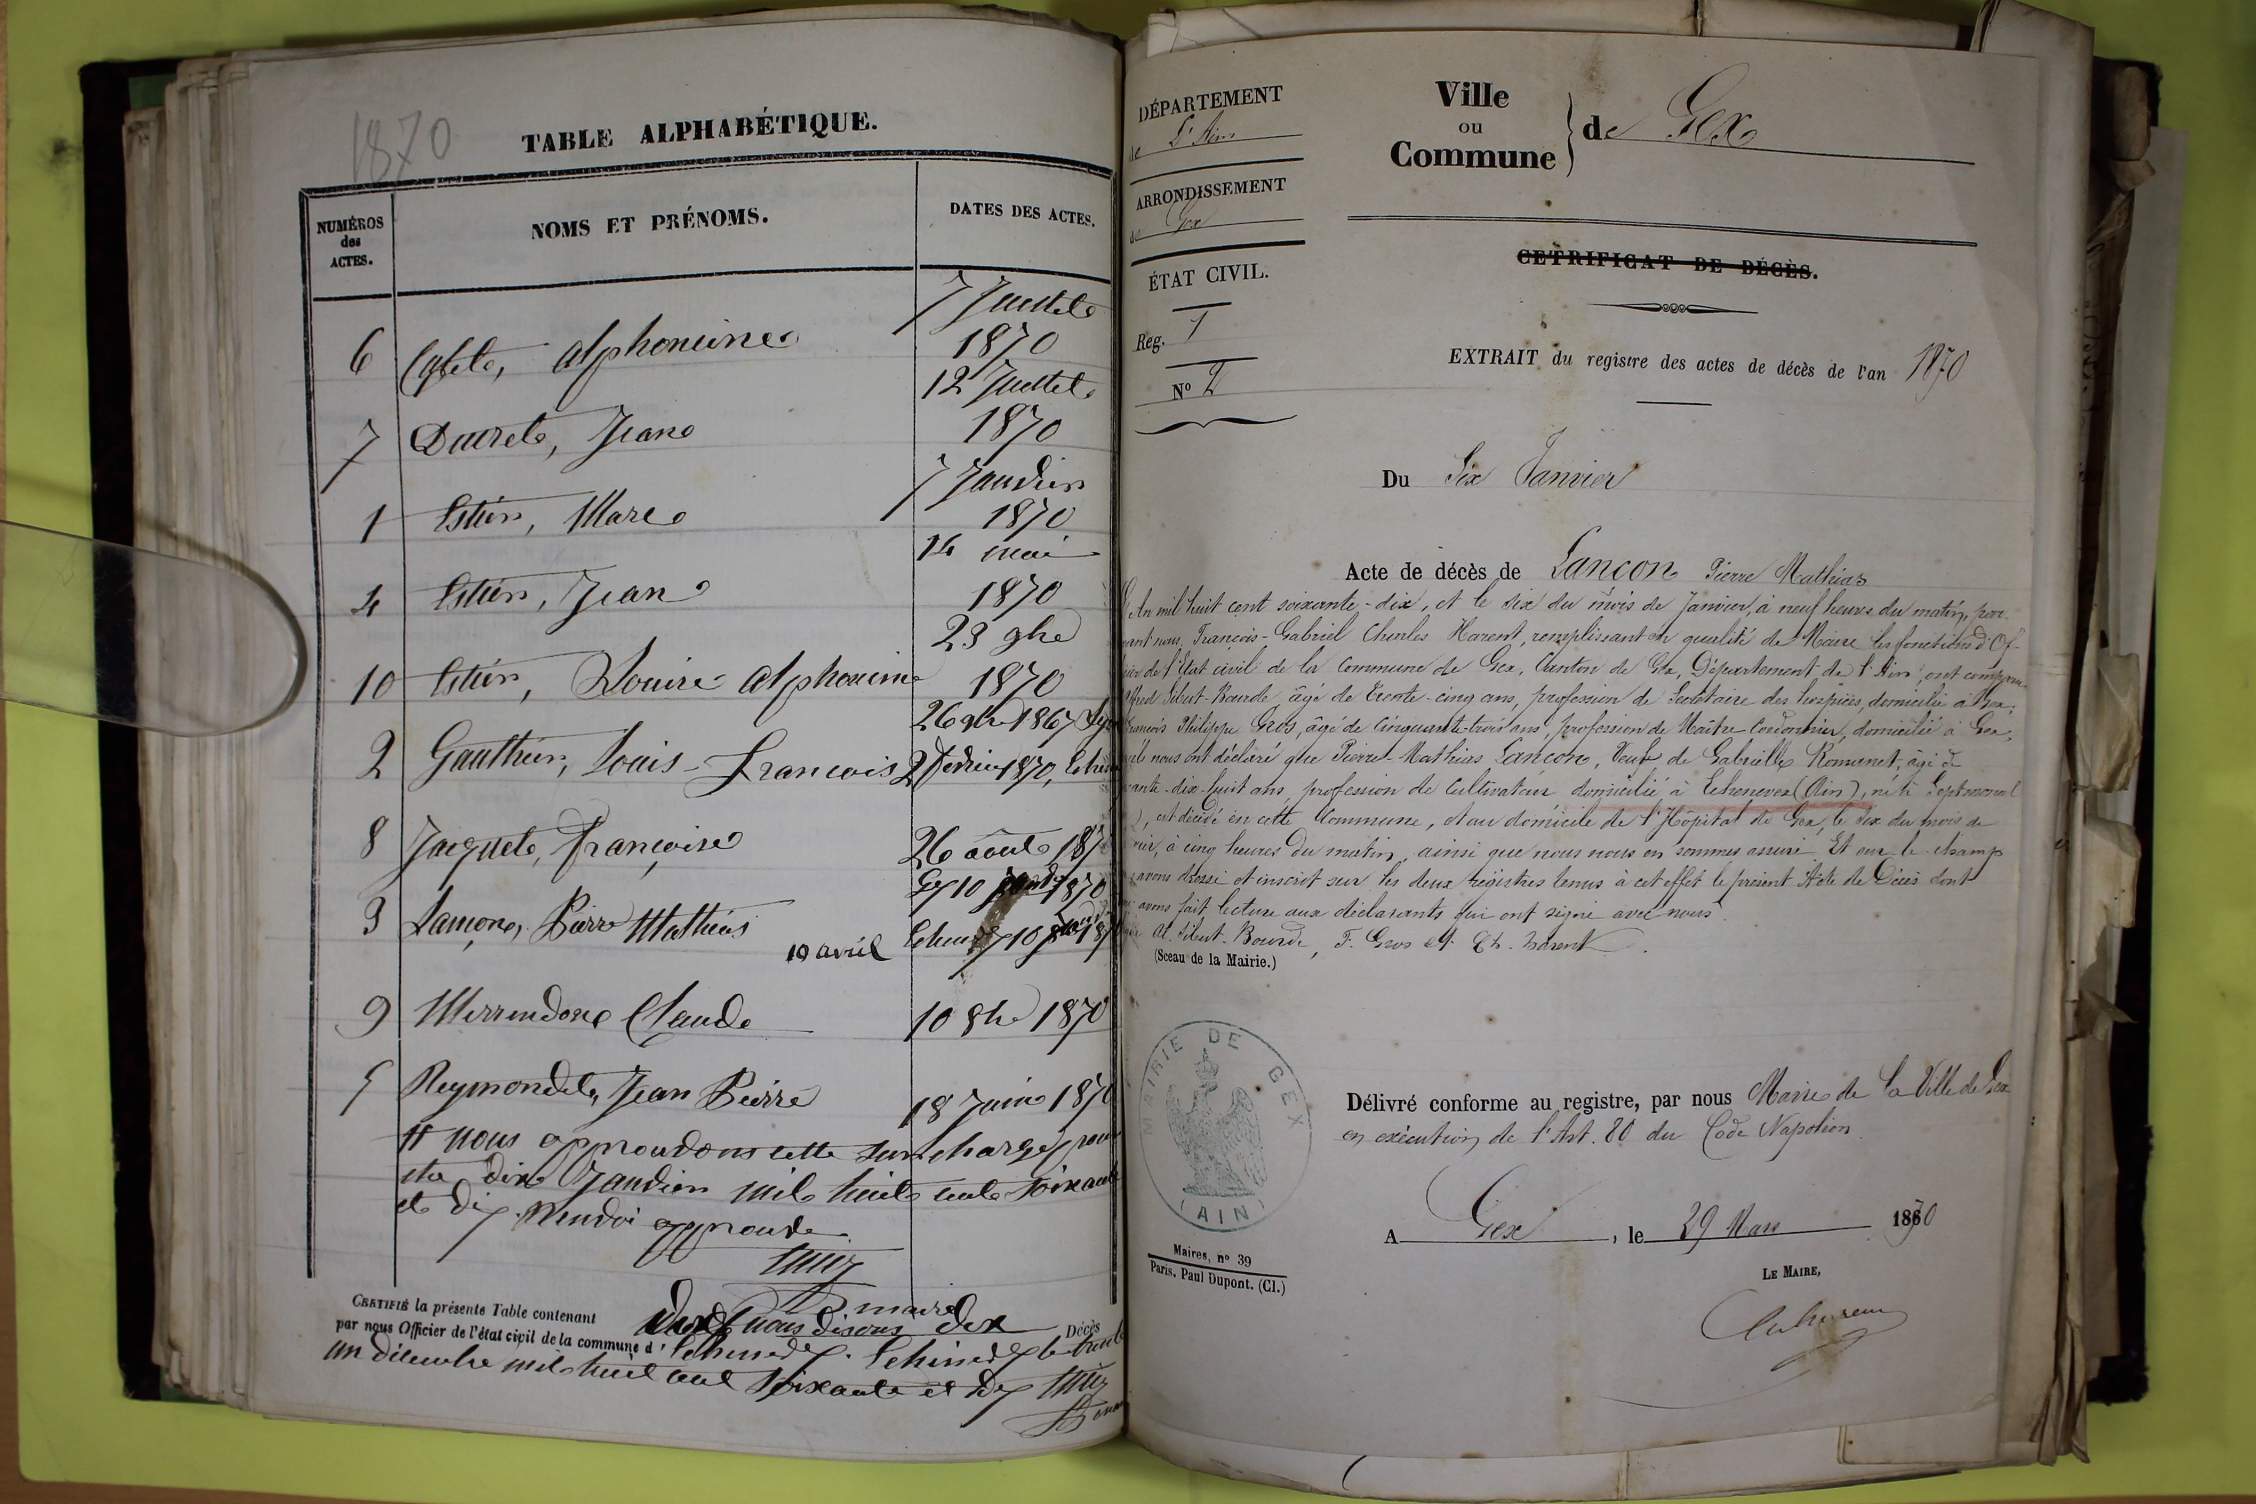 1870
TABLE ALPHABÉTIQUE.
NUMÉROS
des
ACTES.
NOMS ET PRÉNOMS.
DATES DES ACTES.
7 Juillet
6 alphonsine 1870
12 Juillet
7 Ducret, Jean 1870
7 Janvier
1 Estier, Marc 1870
14 mai
4 Estier, Jean 1870
23 9bre
10 Estier, Louise alphonsine 1870
26 9bre 1867
2 Gauthier, Louis-François 2 février 1870,
8 Jacquet, Françoise 26 août 187
Gex 10 1870
3 Lançon, Pierre Mathias
19 avril
9 Claude 10 8bre 1870
5 Reymondet, Jean Pierre 18 Juin 1870
# nous approuvons cette surcharge pour
dix Janvier mil huit cent soixante
et dix. Renvoi approuvé
maire
CERTIFIÉ la présente Table contenant dix nous disons dix Décès
par nous Officier de l'état civil de la commune d' Echenevex. Echenevex le trente
un décembre mil huit cent soixante et dix
DÉPARTEMENT
de L'Ain
ARRONDISSEMENT
de Gex
ÉTAT CIVIL.
Reg. 1
N° 2
Ville
ou
Commune
de Gex
CETRIFICAT DE DÉCÈS.
EXTRAIT du registre des actes de décès de l'an 1870
Du Six Janvier
Acte de décès de Lançon Pierre Mathias
L'An mil huit cent soixante-dix, et le six du mois de Janvier, à neuf heures du matin, par
vant nous, François-Gabriel Charles Harent, remplissant en qualité de Maire les fonctions d'Of-
cier de l'Etat civil de la Commune de Gex, Canton de Gex, Département de l'Ain, ont comparu
Alfred Sibut-Bourde, âgé de trente-cinq ans, profession de Secrétaire des hospices, domicilié à Gex,
François Philippe Gros, âgé de cinquante-trois ans, profession de Maître Cordonnier, domicilié à Gex,
quels nous ont déclaré que Pierre-Mathias Lançon, veuf de Gabrielle Romanet, âgé de
xante-dix-huit ans, profession de Cultivateur domicilié à Echenevex (Ain), né à Septmoncel
), est décédé en cette Commune, et au domicile de l'Hôpital de Gex, le six du mois de
vier, à cinq heures du matin, ainsi que nous nous en sommes assuré. Et sur le champ
avons dressé et inscrit sur les deux registres tenus à cet effet le présent Acte de Décès dont
avons fait lecture aux déclarants qui ont signé avec nous.
Al. Sibut-Bourde, F. Gros et Ch. Harent.
(Sceau de la Mairie.)
MAIRIE DE GEX
(AIN)
Délivré conforme au registre, par nous Maire de la Ville de Gex
en exécution de l'Art. 80 du Code Napoléon.
A Gex, le 29 Mars 1870
LE MAIRE,
Maires, n° 39
Paris, Paul Dupont. (Cl.)